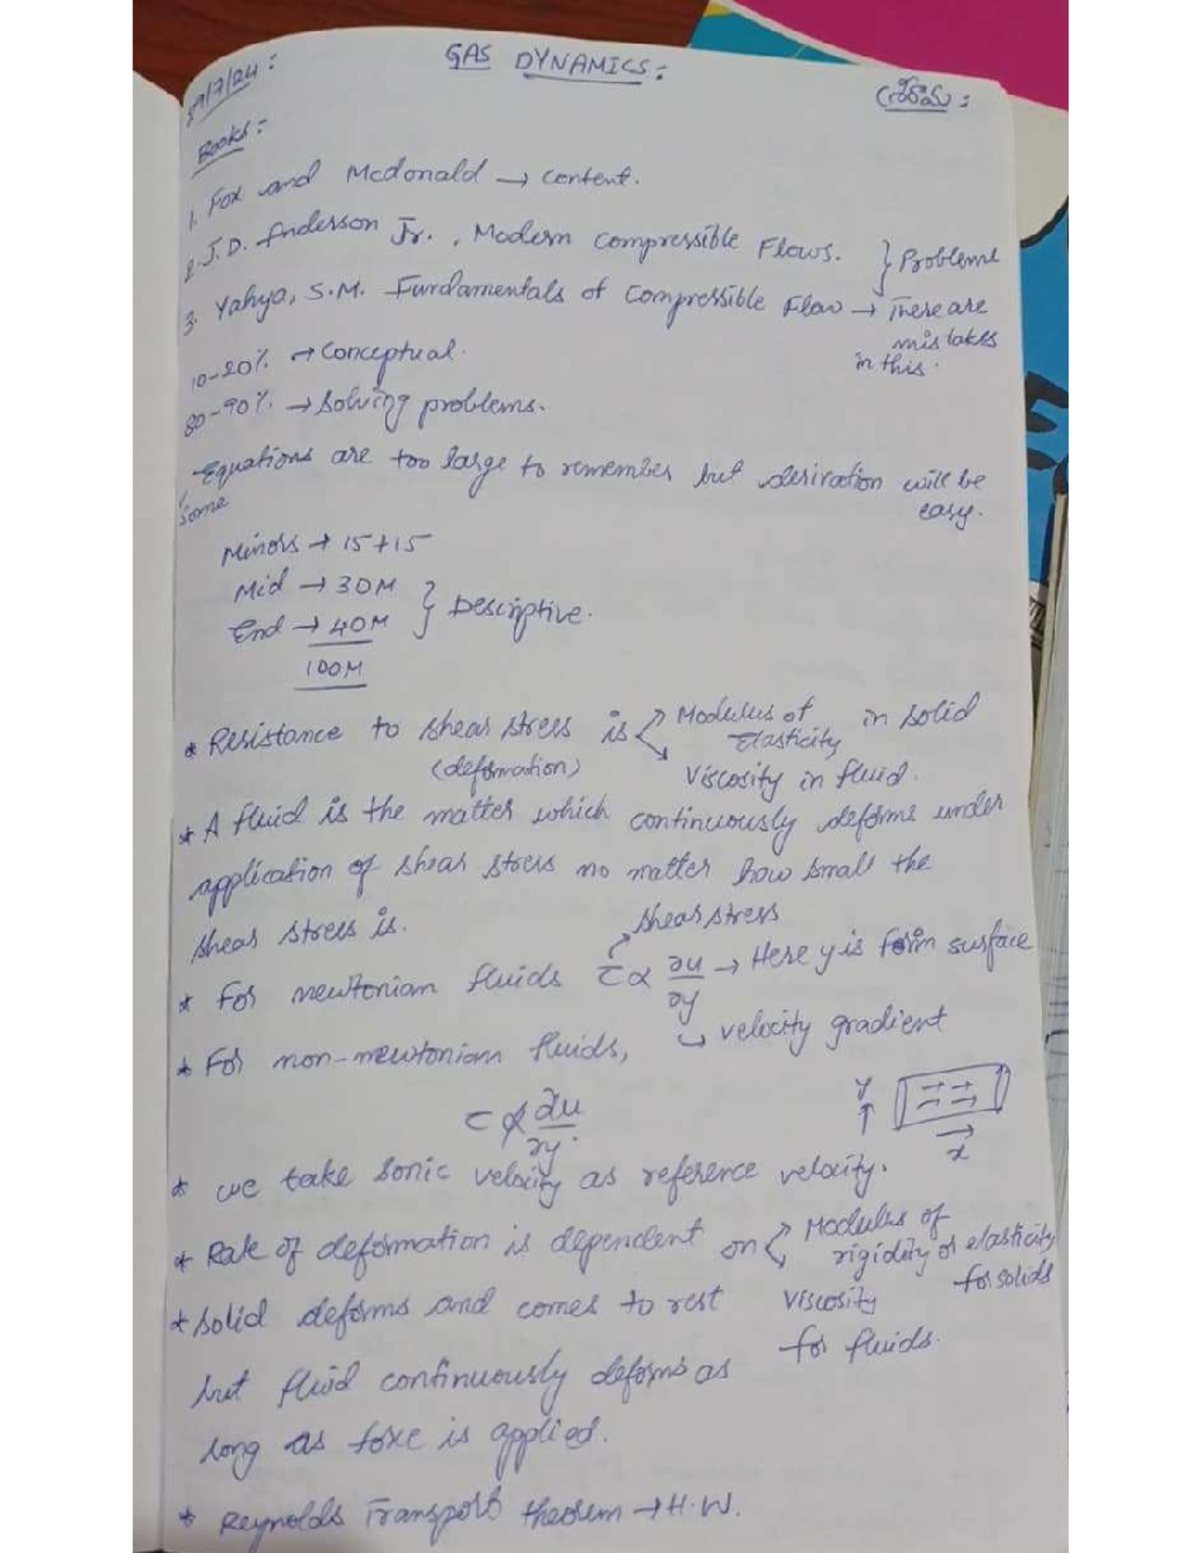 GAS DYNAMICS:
/7/24:
శ్రీరామ:
Books:
1. Fox and Mcdonald → content.
2. J.D. Anderson Jr., Modern compressible Flows. } Problems
3. Yahya, S.M. Fundamentals of Compressible Flow → There are
mistakes
in this.
10-20% → Conceptual.
80-90% → Solving problems.
Equations are too large to remember but derivation will be
Some
easy.
Minors → 15+15
Mid → 30M
End → 40M } Descriptive.
100M
* Resistance to shear stress is Modulus of in solid
Elasticity
(deformation)
Viscosity in fluid.
* A fluid is the matter which continuously deforms under
application of shear stress no matter how small the
shear stress is.
shear stress
* For newtonian fluids τ α ∂u/∂y → Here y is from surface
velocity gradient
* For non-newtonian fluids,
τ α̸ ∂u/∂y.
y
x
* we take sonic velocity as reference velocity.
* Rate of deformation is dependent on Modulus of
rigidity or elasticity
for solids
viscosity
for fluids.
* Solid deforms and comes to rest
but fluid continuously deforms as
long as force is applied.
* Reynolds Transport theorem → H.W.